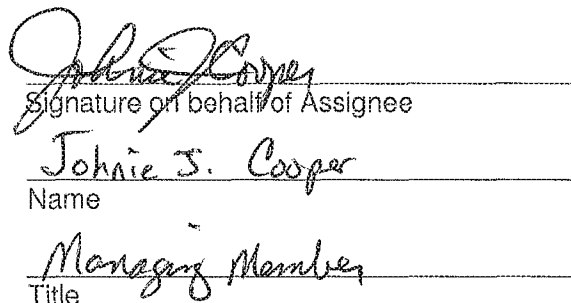 Johnie J Cooper
Signature on behalf of Assignee
Johnie J. Cooper
Name
Managing Member
Title